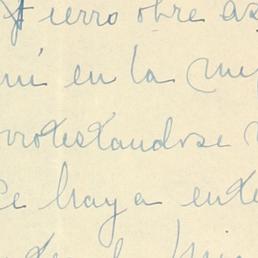 Fierro obre as
mi en la me
rotestandose
ce haya ente